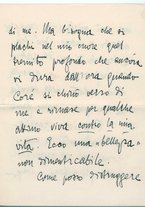 di me. Ma bisogna che si
plachi nel mio cuore quel
tremito profondo che ancora
vi dura dall'ora quando
Coré si chinò verso di
me e rimase per qualche
attimo viva contro la mia
vita. Ecco una bellezza
non dimenticabile.
Come posso distruggere